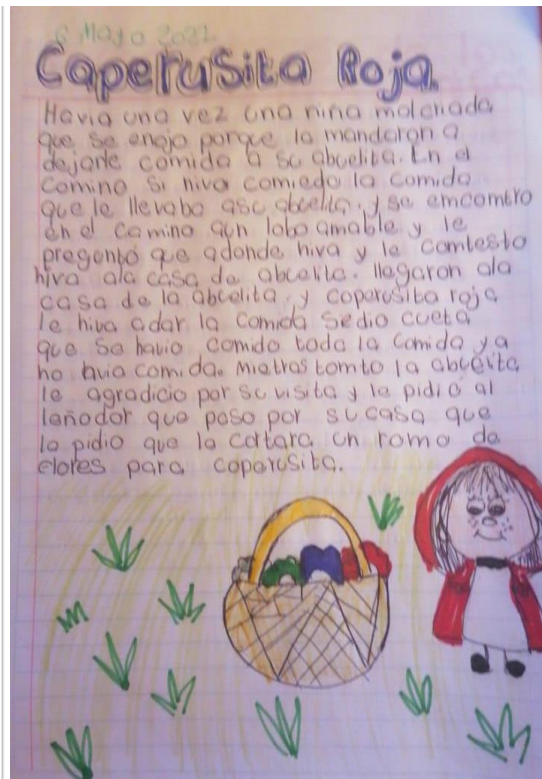 6 Mayo 2021
Caperusita Roja.
Havia una vez una niña malcriada
que se enojo porque la mandaron a
dejarle comida a su abuelita. En el
camino si hiva comiedo la comida
que le llevaba asu abuelita. y se emcomtro
en el camino aun lobo amable y le
preguntó que adonde hiva y le comtesto
hiva ala casa de abuelita. llegaron ala
casa de la abuelita. y caperusita roja
le hiva adar la comida sedio cueta
que se havia comido toda la comida ya
no avia comida. Mietras tomto la abuelita
le agradicio por su visita y le pidió al
leñador que paso por su casa que
le pidio que la cortara un ramo de
elores para caperusita.